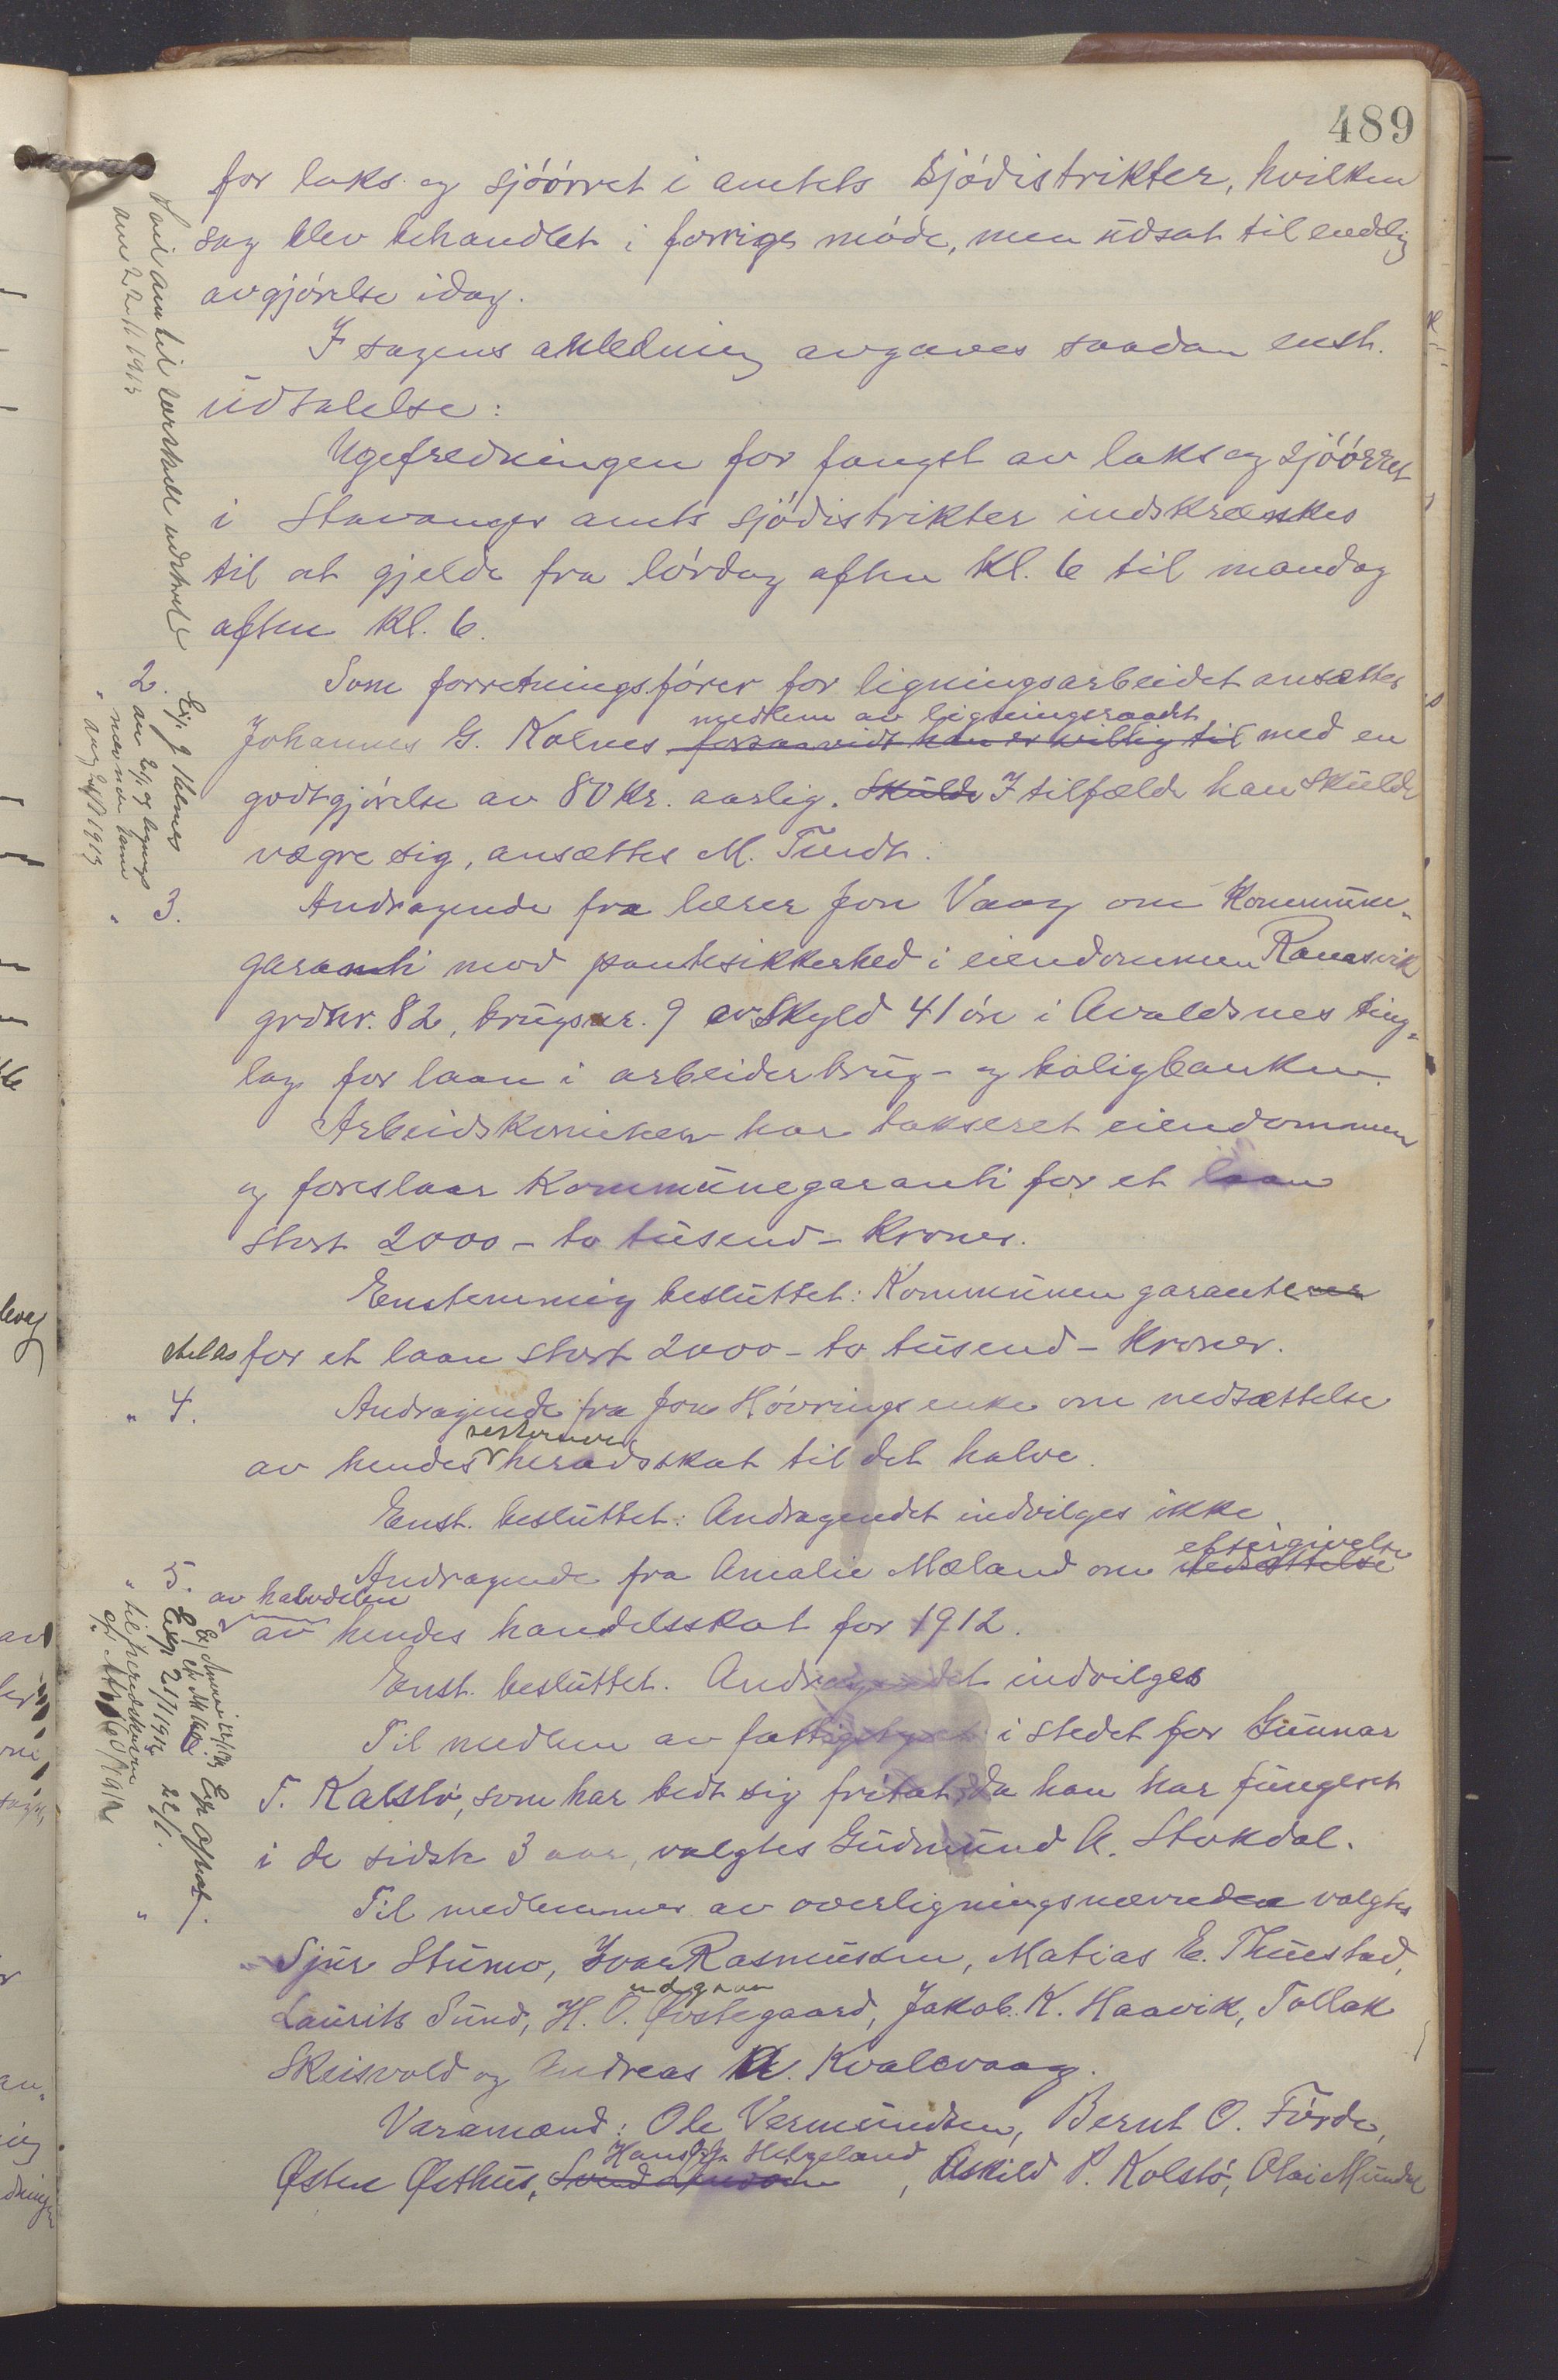 489
for laks og sjöörret i amtets Sjödistrikter, hvilken
sag blev behandlet i forrige möde, men udsat til endelig
avgjörelse idag.
I sagens anledning avgaves saadan enst.
udtalelse:
Ugefredningen for fangst av laks og sjöörret
i Stavanger amts sjödistrikter indskrænkes
til at gjelde fra lördag aften kl. 6 til mandag
aften kl. 6.
2. Som forretningsförer for ligningsarbeidet ansættes
medlem av ligningsraadet
Johannes G. Kolnes forsaavidt han er villig til med en
godtgjörelse av 80 kr. aarlig. Skulde I tilfælde han skulde
vægre sig, ansættes M. Tindt.
" 3. Andragende fra lærer Jon Vaag om Kommune-
garanti mod pantesikkerhed i eiendommen Ramsvik
grdnr. 82, brugsnr. 9 av Skyld 41 öre i Avaldsnes ting-
lag for laan i arbeiderbrug- og boligbanken.
Arbeidskomiteen har takseret eiendommen
og foreslaar Kommunegaranti for et laan
stort 2000 - to tusend - Kroner.
Enstemmig besluttet: Kommunen garanterer
for et laan stort 2000 - to tusend - Kroner.
" 4. Andragende fra Jon Hövrings enke om nedsættelse
resterende
av hendes heradsskat til det halve.
Enst. besluttet: Andragendet indvilges ikke
eftergivelse
5. Andragende fra Amalie Mæland om nedsættelse
av halvdelen
av hendes handelsskat for 1912.
Enst. besluttet. Andragendet indvilges
Til medlem av fattigstyret i stedet for Gunnar
T. Kalstö, som har bedt sig fritat, da han har fungeret
i de sidste 3 aar, valgtes Gudmund A. Stokdal.
" Til medlemmer av overligningsnævnden valgtes
Sjur Stumo, Ivar Rasmussen, Matias E. Thuestad,
udgaar
Laurits Sund, H. O. Østegaard, Jakob K. Haavik, Tollak
Skeisvold og Andreas A. Kvalevaag.
Varamænd: Ole Vermundsen, Bernt O. Förde,
Hans Helgeland
Østen Østhus, , Askild P. Kolstö, Olai Munkel